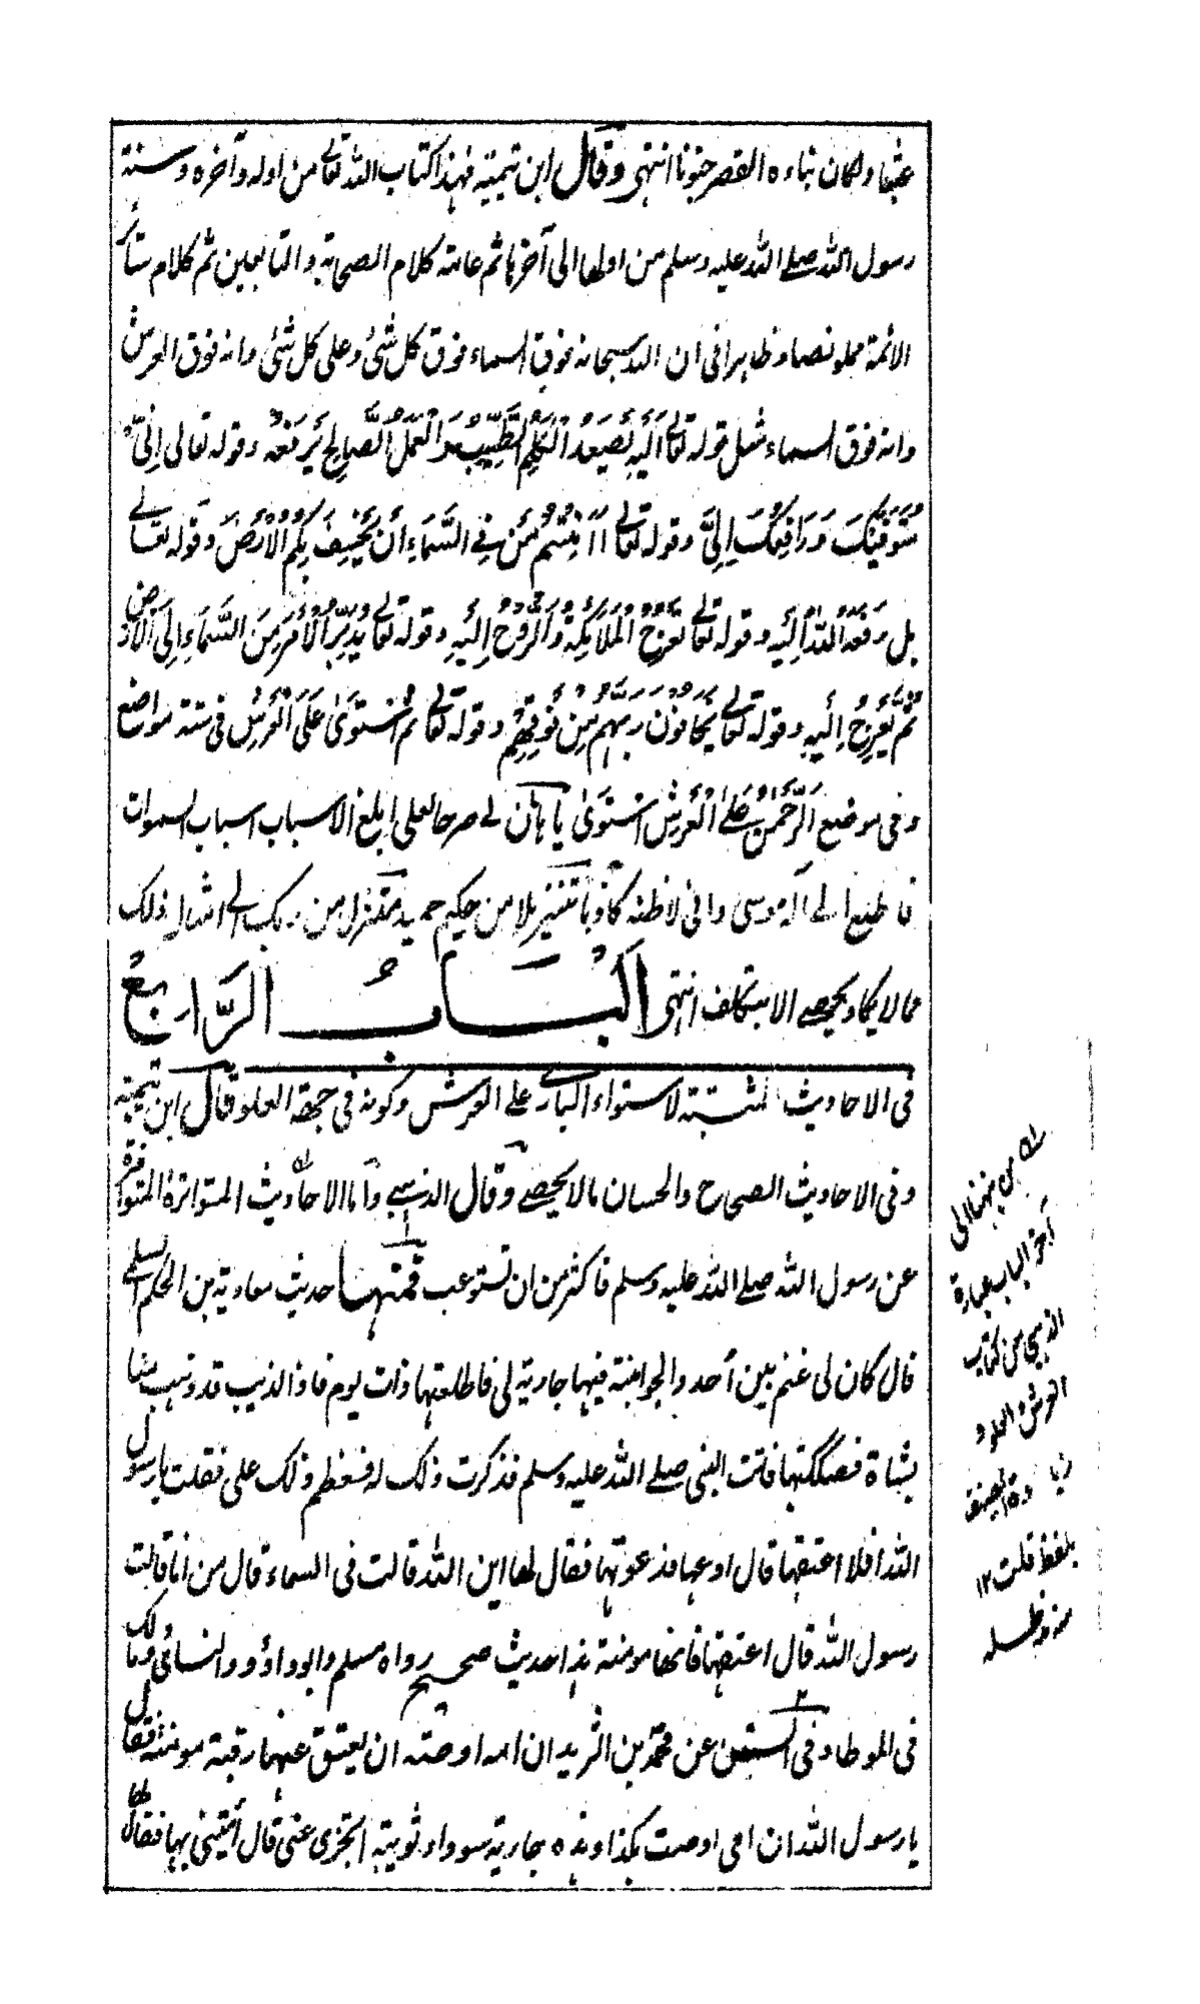 عبثا ولكان بناءه القصر جنونا انتهى وقال ابن تيمية فهذا كتاب الله تعالى من اوله وآخره وسنة
رسول الله صلى الله عليه وسلم من اولها الى آخرها ثم عامة كلام الصحابة والتابعين ثم كلام سائر
الائمة مملو نصا وظاهرا فى ان الله سبحانه فوق السماء فوق كل شئ وعلى كل شئ وانه فوق العرش
وانه فوق السماء مثل قوله تعالى اَلَيْهِ يَصْعَدُ الْكَلِمُ الطَّيِّبُ وَالْعَمَلُ الصَّالِحُ يَرْفَعُهُ وقوله تعالى اِنِّىْ
مُتَوَفِّيْكَ وَرَافِعُكَ اِلَىَّ وقوله تعالى أَاَمِنْتُمْ مَّنْ فِى السَّمَاءِ أَنْ يَّخْسِفَ بِكُمُ الْاَرْضَ وقوله تعالى
بل رَفَعَهُ اللهُ اِلَيْهِ وقوله تعالى تَعْرُجُ الْمَلَائِكَةُ وَالرُّوْحُ اِلَيْهِ وقوله تعالى يُدَبِّرُ الْاَمْرَ مِنَ السَّمَاءِ اِلَى الْاَرْضِ
ثُمَّ يَعْرُجُ اِلَيْهِ وقوله تعالى يَخَافُوْنَ رَبَّهُمْ مِنْ فَوْقِهِمْ وقوله تعالى ثُمَّ اسْتَوٰى عَلَى الْعَرْشِ فى ستة مواضع
وفى موضع اَلرَّحْمٰنُ عَلَى الْعَرْشِ اسْتَوٰى يا هامان لى صرحا لعلى ابلغ الاسباب اسباب السموات
فاطلع الى اله موسى وانى لاظنه كاذبا تنزيلا من حكيم حميد منزل من ربك الى امثال ذلك
مما لا يكاد يحصى الا بتكلف انتهى اَلْبَابُ الرَّابِعُ
فى الاحاديث المثبتة لاستواء البارى على العرش وكونه فى جهة العلو قال ابن تيمية
وفى الاحاديث الصحاح والحسان ما لا يحصى وقال الذهبى وأما الاحاديث المتواترة المتوافرة
عن رسول الله صلى الله عليه وسلم فاكثر من ان تستوعب فمنها حديث معاوية بن الحكم السلمى
قال كان لى غنم بين أحد والجوانية فيها جارية لى فاطلعتها ذات يوم فاذا الذيب قد ذهب منها
بشاة فصككتها فاتت النبى صلى الله عليه وسلم فذكرت ذلك له فعظم ذلك على فقلت يا رسول
الله افلا اعتقها قال ادعها فدعوتها فقال لها اين الله قالت فى السماء قال من انا قالت
رسول الله قال اعتقها فانها مومنة هذا حديث صحيح رواه مسلم وابوداؤد والنسائى ومالك
فى الموطا وفى السنن عن محمد بن الشريد ان امه اوصته ان يعتق عنها رقبة مومنة فقال
يا رسول الله ان امى اوصت بكذا وهذه جارية سوداء نوبية اتجزى عنى قال أيتينى بها فقال لها
له من ههنا الى
آخر الباب عبارة
الذهبى من كتاب
العرش العلو
بلفظ قلت ١٢
منه مد ظله